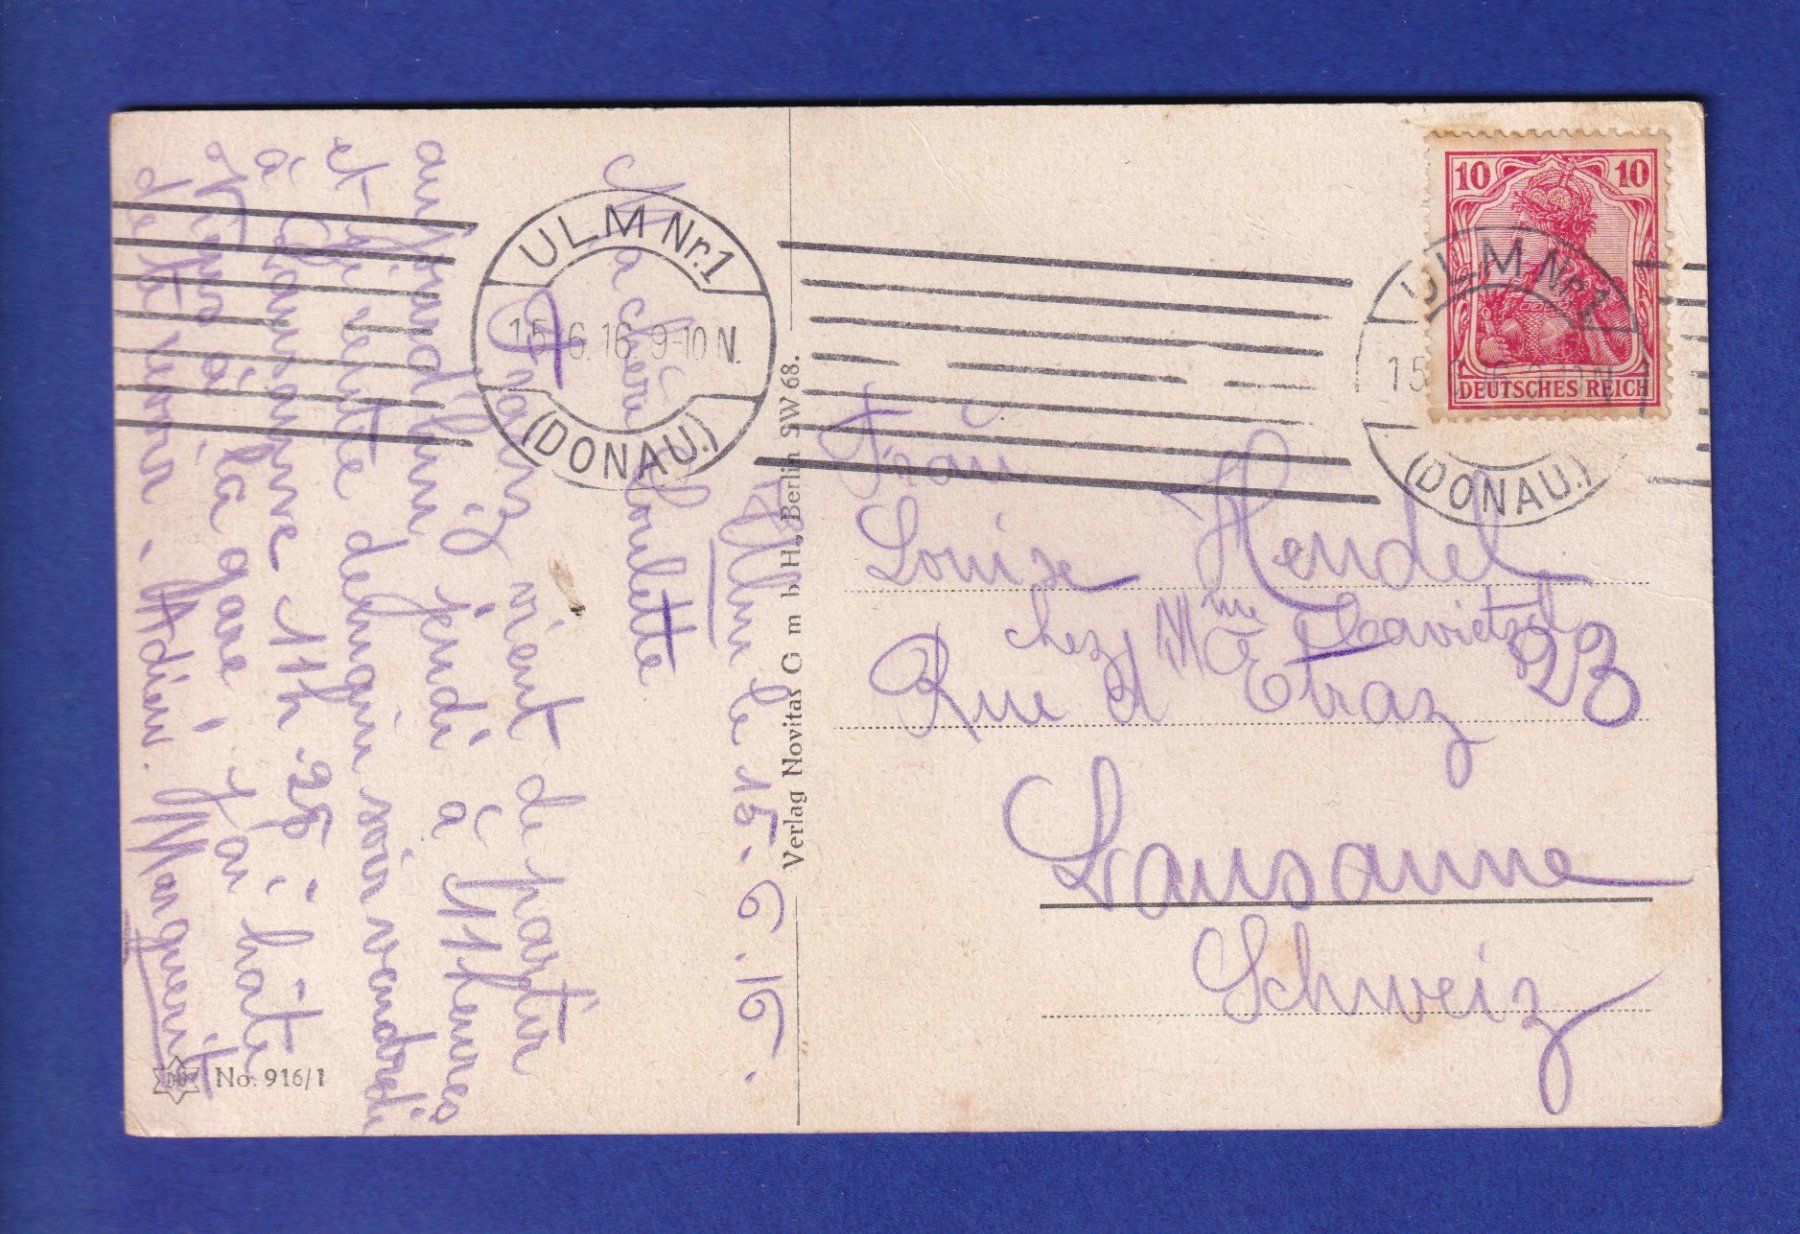 Ulm le 15. 6. 16.
Ma chère Loulette
Franz vient de partir
aujourd'hui jeudi à 11 heures
et sera demain soir vendredi
à Lausanne 11 h 25;
viens à la gare, j'ai hâte
de te revoir. Adieu. Marguerite
ULM Nr.1
15.6.16 9-10 N.
(DONAU.)
Verlag Novitas G m b H., Berlin SW 68.
No. 916/1
10 10
DEUTSCHES REICH
ULM Nr.1
15
(DONAU.)
Frau
Louise Hendel
chez Mme
Rue d'Etraz 23
Lausanne
Schweiz